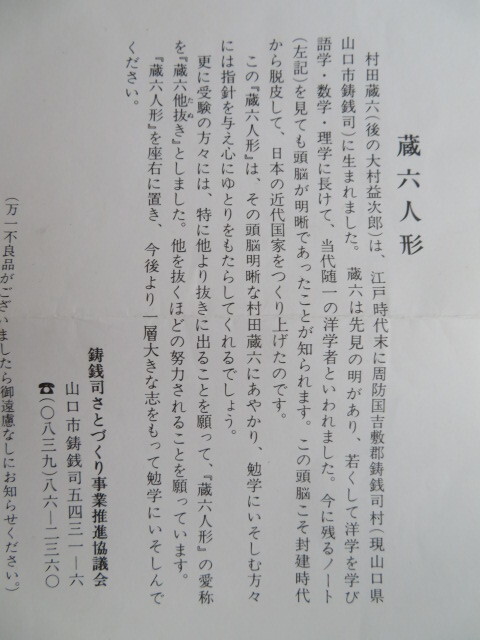 蔵六人形
村田蔵六(後の大村益次郎)は、江戸時代末に周防国吉敷郡鋳銭司村(現山口県
山口市鋳銭司)に生まれました。蔵六は先見の明があり、若くして洋学を学び
語学・数学・理学に長けて、当代随一の洋学者といわれました。今に残るノート
(左記)を見ても頭脳が明晰であったことが知られます。この頭脳こそ封建時代
から脱皮して、日本の近代国家をつくり上げたのです。
この『蔵六人形』は、その頭脳明晰な村田蔵六にあやかり、勉学にいそしむ方々
には指針を与え心にゆとりをもたらしてくれるでしょう。
更に受験の方々には、特に他より抜きに出ることを願って、『蔵六人形』の愛称
を『蔵六他抜き』としました。他を抜くほどの努力されることを願っています。
たぬ
『蔵六人形』を座右に置き、今後より一層大きな志をもって勉学にいそしんで
ください。
鋳銭司さとづくり事業推進協議会
山口市鋳銭司五四三一―六
☎(〇八三九)八六―二三六〇
(万一不良品がございましたら御遠慮なしにお知らせください。)